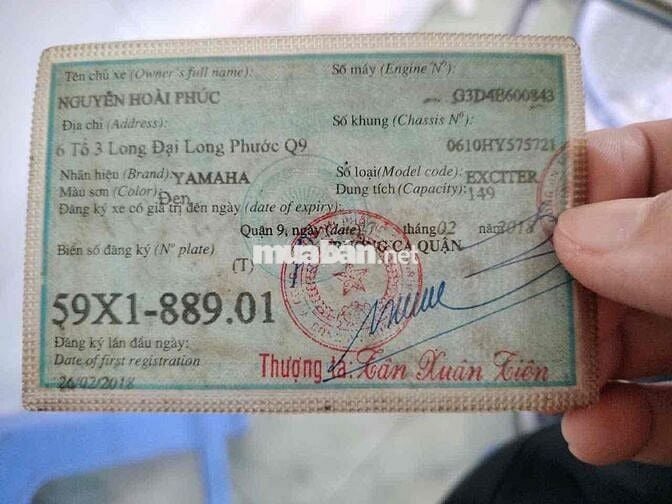 Tên chủ xe (Owner's full name): Số máy (Engine Nº):
NGUYỄN HOÀI PHÚC G3D4E600843
Địa chỉ (Address): Số khung (Chassis Nº):
6 Tổ 3 Long Đại Long Phước Q9 0610HY575721
Nhãn hiệu (Brand): YAMAHA Số loại (Model code): EXCITER
Màu sơn (Color): Đen Dung tích (Capacity): 149
Đăng ký xe có giá trị đến ngày (date of expiry):
Quận 9, ngày (date) tháng 02 năm 2018
Biển số đăng ký (Nº plate) TRƯỞNG CA QUẬN
muaban.net
(T)
59X1-889.01
Đăng ký lần đầu ngày:
Date of first registration
26/02/2018
Thượng tá: Trần Xuân Tiên